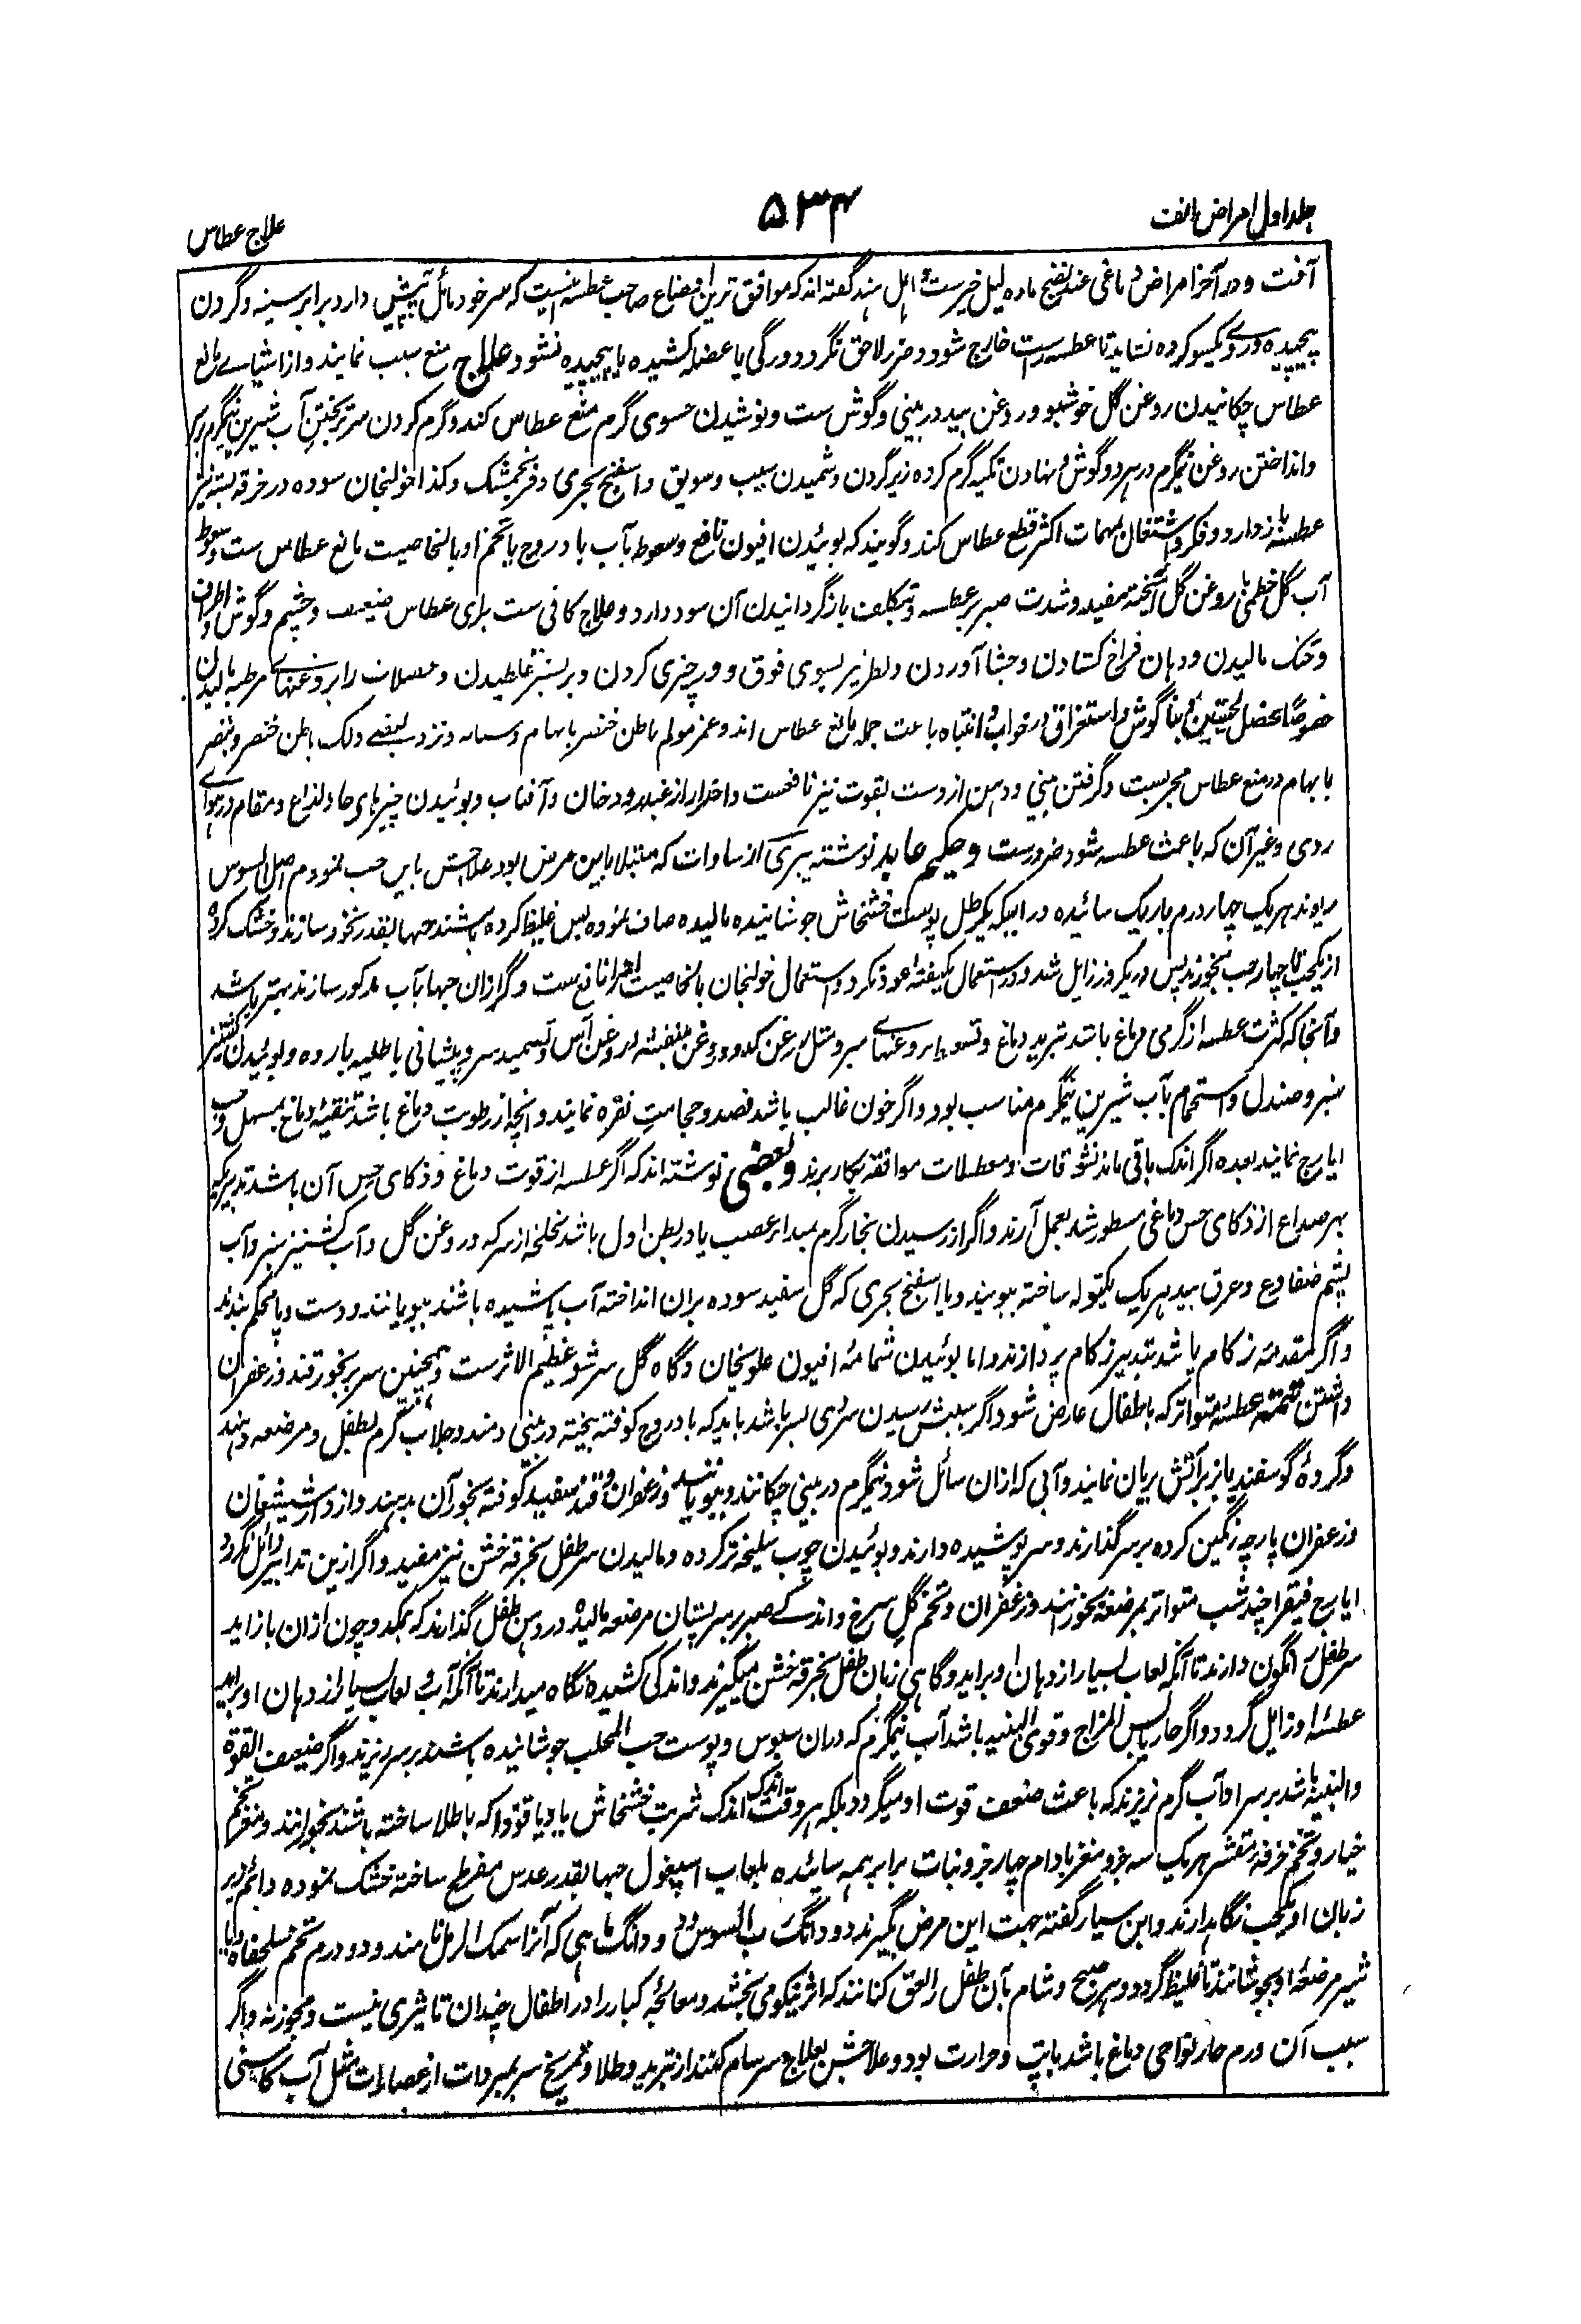 جلد اول امراض انف
۵۳۴
علاج عطاس
آفت و در آخر امراض دماغی عند نضج ماده دلیل خیرست و اهل هند گفته اند که موافق ترین اوضاع صاحب عطسه اینست که سر خود مائل به پیش دارد برابر سینه و گردن
پیچیده و روی یکسو کرده نشاید تا عطسه راست خارج شود و ضرر لاحق نگردد و رگی یا عضله کشیده یا پیچیده نشود علاج منع سبب نمایند و از اشیای مانع
عطاس چکانیدن روغن گل خوشبو و روغن بید در بینی و گوش ست و نوشیدن حسوی گرم منع عطاس کند و گرم کردن سر بریختن آب شیرین نیگرم بر
و انداختن روغن نیگرم در هر دو گوش و نهادن تکیه گرم کرده زیر گردن و شمیدن سیب و سویق و اسفنج بحری و فرنجمشک و کذا خولنجان سوده در خرقه بسته نیز
عطسه باز دارد و فکر و اشتغال بمهمات اکثر قطع عطاس کند و گویند که بوئیدن افیون نافع و سعوط بآب بادروج یا تخم او بالخاصیت مانع عطاس ست و سعوط
آب گل خطمی با روغن گل آمیخته مفید و شدت صبر بر عطسه و بتکلف باز گردانیدن آن سود دارد و علاج کافی ست برای عطاس ضعیف و چشم و گوش و اطراف
و حنک مالیدن و دهان فراخ کشادن و جشا آوردن و نظر بسوی فوق و در چیزی کردن و بر بستر غلطیدن و عضلات را بروغنهای مرطبه مالیدن
خصوصا عضل لحیین و بناگوش و استغراق در خواب و انتباه باعت جمله مانع عطاس اند و غمز مولم باطن خنصر بابهام و نزد بعضی دلک باطن خنصر و بنصر
بابهام در منع عطاس مجربست و گرفتن بینی و دهن از دست بقوت نیز نافعست و احتراز از غبار و دخان و آفتاب و بوئیدن چیزهای حاد لذاع و مقام در هوای
ردی و غیر آن که باعث عطسه شود ضرورست و حکیم عابد نوشته پیری از سادات که مبتلا باین مرض بود علاجش باین حب نمودم اصل السوس
ریوند هر یک چهار درم باریک سائیده در آبیکه یکرطل پوست خشخاش جوشانیده مالیده صاف نموده پس غلیظ کرده باشند حبها بقدر نخود سازند و خشک کرده
از یکحب تا چهار حب بخورند پس در یکروز زایل شد و در استعمال یکهفته عود نکرد و استعمال خولنجان بالخاصیت نافع ست و گر ازان حبها بآب مذکور سازند بهتر باشد
و آنجا که کثرت عطسه از گرمی دماغ باشد تبرید دماغ بروغنهای سرد مثل روغن کدو و روغن بنفشه و روغن آس و سر و پیشانی باطلیه بارده و بوئیدن کشنیز
سبز و صندل و استحمام بآب شیرین نیگرم مناسب بود و اگر خون غالب باشد فصد و حجامت نقره نمایند و آنچه از رطوبت دماغ باشد تنقیه دماغ بمسهل و حب
ایارج نمایند بعده اگر اندک باقی ماند نشوقات و معطلات موافقه بکار برند و بعضی نوشته اند که اگر عطسه از قوت دماغ و ذکای حس آن باشد تدبیریکه
بهر صداع از ذکای حس دماغی مسطور شد بعمل آرند و اگر از رسیدن بخار گرم بمبدا عصب یا در بطن اول باشد لخلخه از سرکه و روغن گل و آب کشنیز سبز و آب
پشم ضفادع و عرق بید هر یک یکتوله ساخته ببویند و یا اسفنج بحری که گل سفید سوده بران انداخته آب پاشیده باشند ببویانند و دست و پا محکم بندند
و اگر مقدمه زکام باشد بتدبیر زکام پردازند و اما بوئیدن شمامه افیون علو یخان و گاه گل سرشو عظیم الاثرست و همچنین سر بر بخور قند و زعفران
داشتن تتمه عطسه متواتر که باطفال عارض شود اگر بسبب رسیدن سردی بسر باشد باید که بادروج کوفته بیخته در بینی دمند و جلاب گرم بطفل و مرضعه دهند
و گرده گوسفند یا بز بر آتش بریان نمایند و آبی که ازان سائل شود نیمگرم در بینی چکانند و ببویانند و زعفران و قند سفید کوفته بخور آن بدهند و از دارشیشعان
و زعفران پارچه رنگین کرده بر سر گذارند و سر پوشیده دارند و بوئیدن چوب سلیخه تر کرده و مالیدن سر طفل بخرقه خشن نیز مفید و اگر ازین تدابیر زائل نگردد
ایارج فیقرا چند شب متواتر بمرضعه بخورانند و زعفران و تخم گل سرخ و اندکے صبر بر سر پستان مرضعه مالیده در دهن طفل گذارند که بمکد و چون ازان باز آید
سر طفل نگون دارند تا آنکه لعاب بسیار از دهان او برآید و گاهی زبان طفل بخرقه خشن میگیرند و اندکی کشیده نگاه میدارند تا آنکه آب و لعاب بسیار از دهان او برآید
عطسه او زایل گردد و اگر حار یابس المزاج و قوی البنیه باشد آب نیمگرم که دران سبوس و پوست حب المحلب جوشانیده باشند بر سر ریزند و اگر ضعیف القوة
و البنیه باشد بر سر او آب گرم نریزند که باعث ضعف قوت او میگردد بلکه هر وقت اندک اندک شربت خشخاش یا دیاقوذا که با طلا ساخته باشند بخورانند و مغز تخم
خیار و تخم خرفه مقشر هر یک سه جزو مغز بادام چهار جزو نبات برابر همه سائیده بلعاب اسپغول حبها بقدر عدس مفرطح ساخته خشک نموده دائم زیر
زبان او یکحب نگاهدارند و ابن سیار گفته جهت این مرض بگیرند دو دانگ رب السوس و دو دانگ ماهی که آنرا سمک الرمل نامند و دو درم تخم سلحفاة و با
شیر مرضعه او بجوشانند تا غلیظ گردد و هر صبح و شام بآن طفل را لعق کنانند که اثر نیکو می بخشد و معالجه کبار را در اطفال چندان تاثیری نیست و مجوز نه و اگر
سبب آن ورم حار نواحی دماغ باشد با تپ و حرارت بود و علاجش بعلاج سرسام کنند از تبرید و طلا و تمریخ سر بمبردات از عصارات مثل آب کاسنی